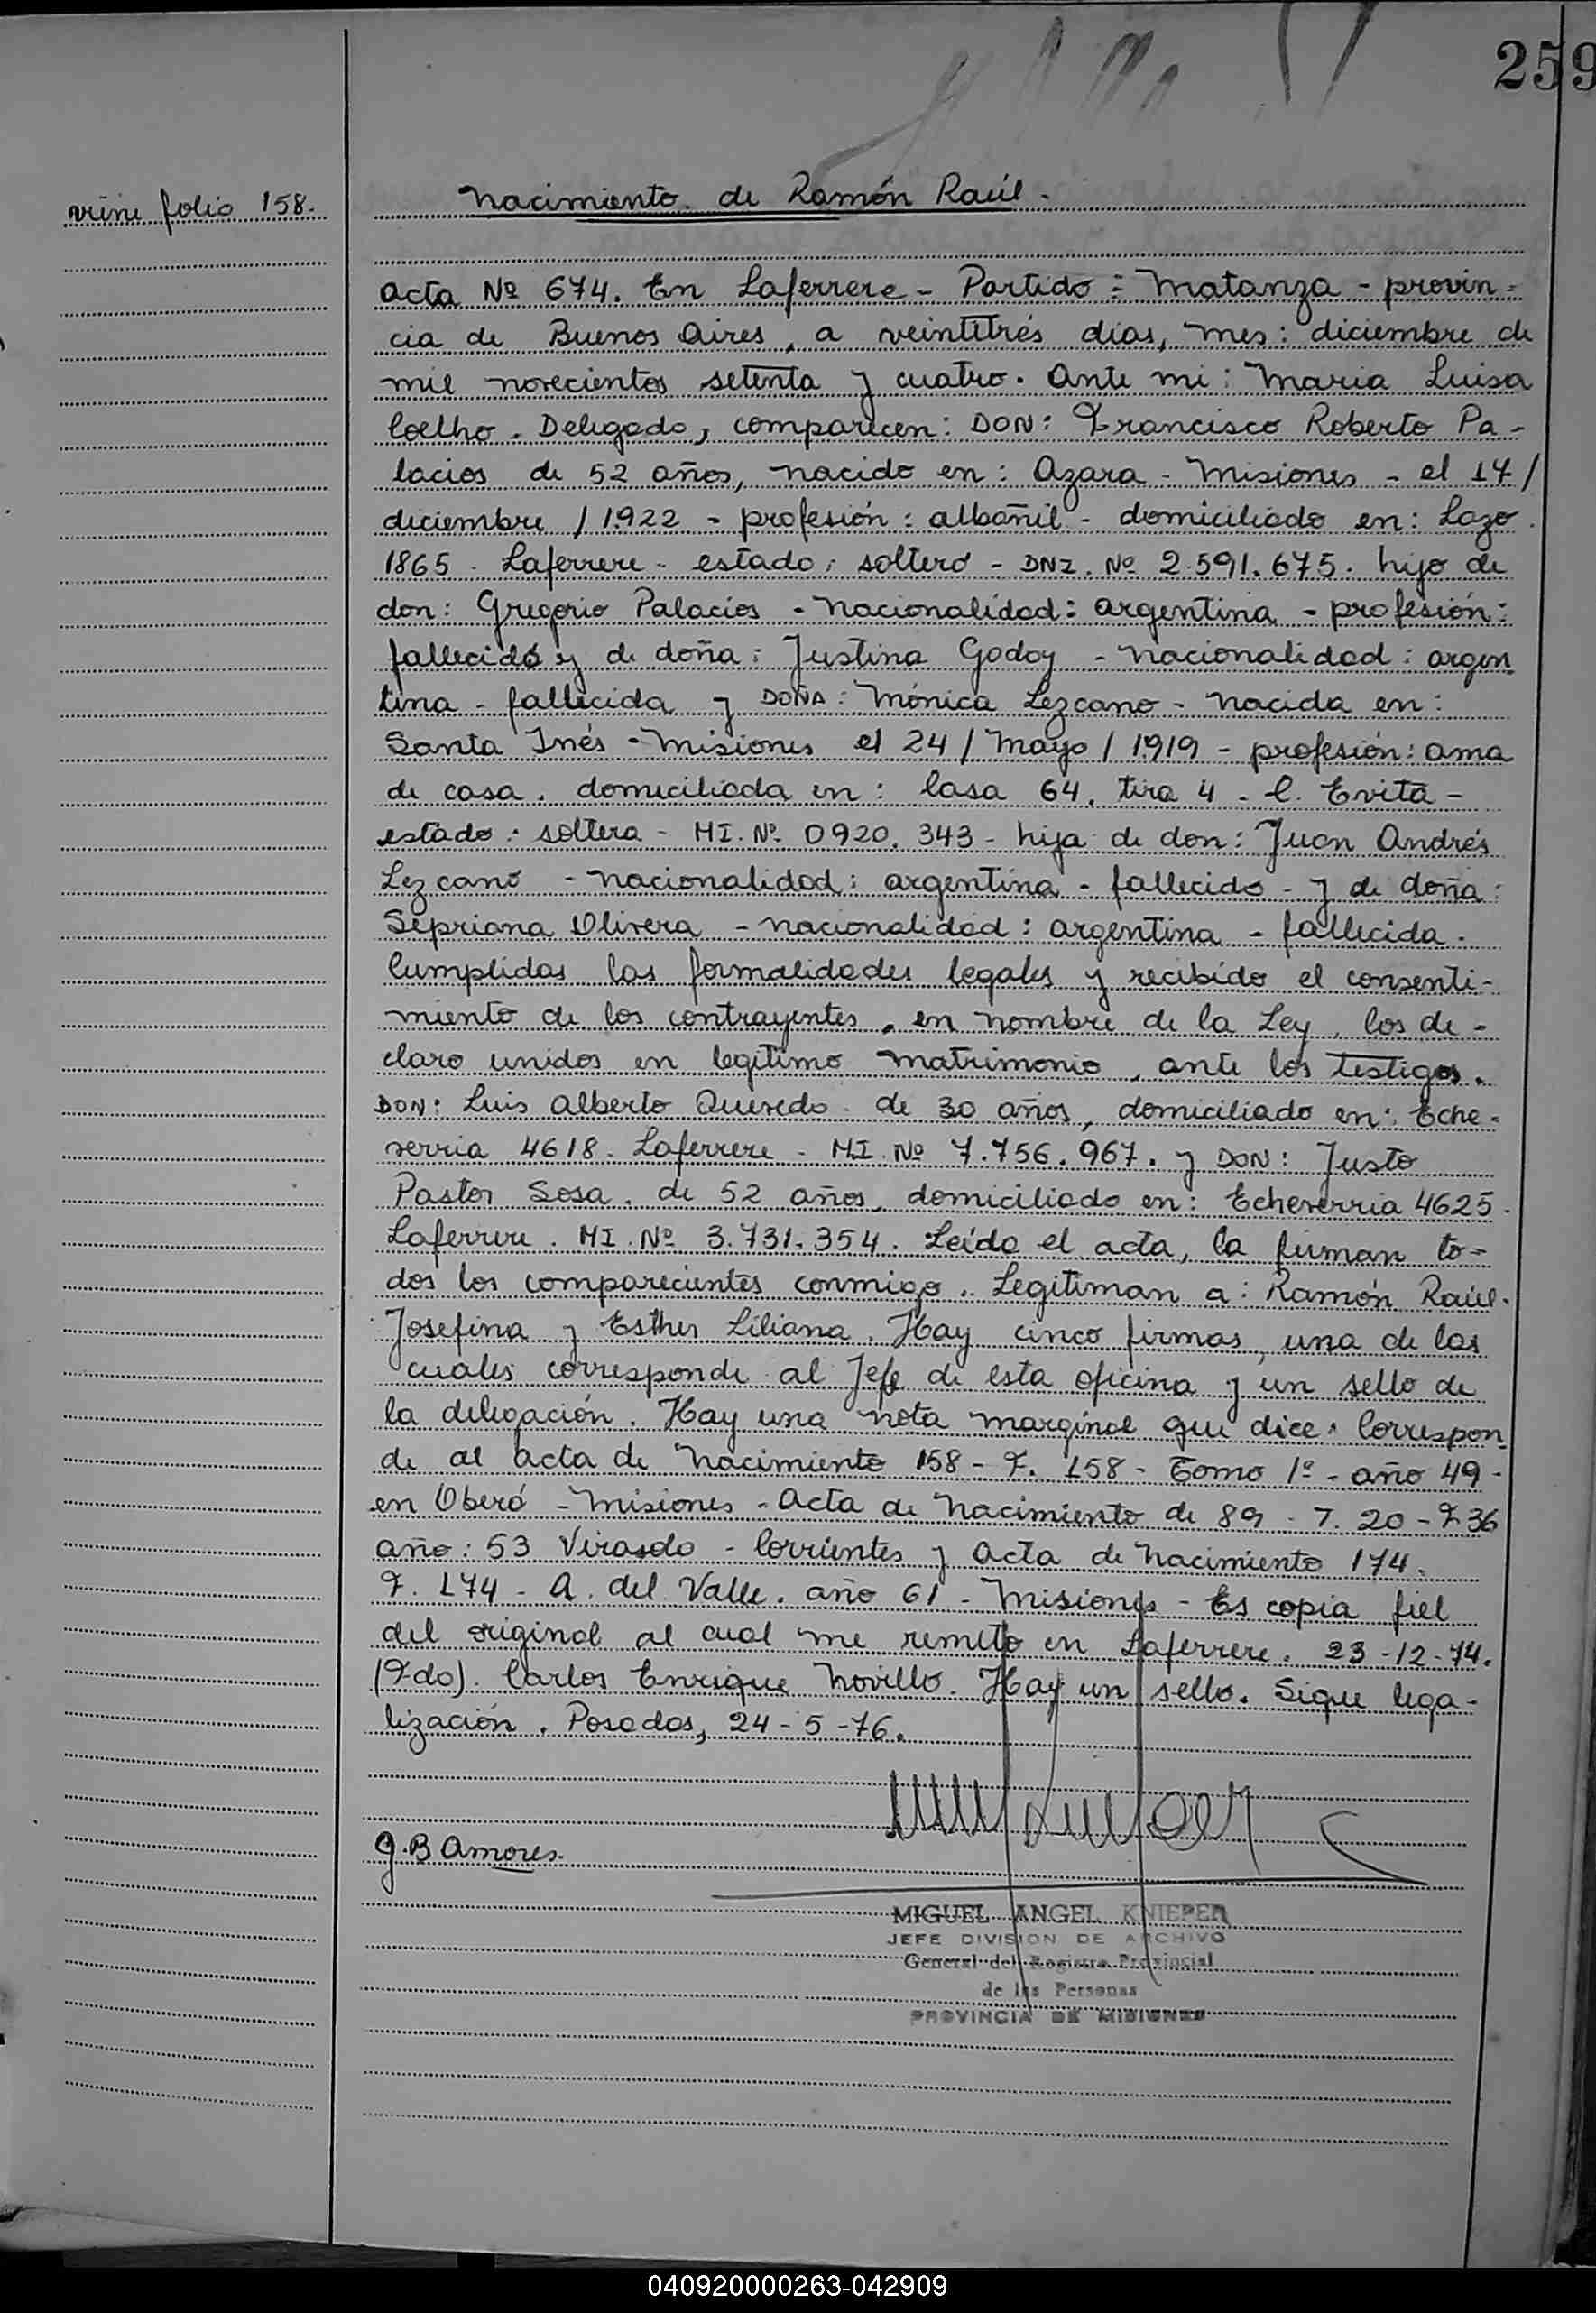 259
viene folio 158.
Nacimiento de Ramón Raúl.
Acta Nº 674. En Laferrere - Partido: Matanza - provin=
cia de Buenos Aires, a veintitrés días, mes: diciembre de
mil novecientos setenta y cuatro. Ante mi: Maria Luisa
Coelho. Delegado, comparecen: DON: Francisco Roberto Pa-
lacios de 52 años, nacido en: Azara - Misiones - el 17/
diciembre / 1922 - profesión: albañil - domiciliado en: Lazo
1865 - Laferrere - estado: soltero - DNI. Nº 2.591.675. hijo de
don: Gregorio Palacios - nacionalidad: argentina - profesión:
fallecido y de doña: Justina Godoy - nacionalidad: argen
tina - fallecida y DOÑA: Mónica Lezcano - nacida en:
Santa Inés - Misiones el 24 / Mayo / 1919 - profesión: ama
de casa. domiciliada en: Casa 64. tira 4 - C. Evita -
estado: soltera - MI. Nº 0920.343 - hija de don: Juan Andrés
Lezcano - nacionalidad: argentina - fallecido - y de doña:
Sepriana Olivera - nacionalidad: argentina - fallecida.
Cumplidas las formalidades legales y recibido el consenti-
miento de los contrayentes, en nombre de la Ley, los de-
claro unidos en legítimo matrimonio, ante los testigos.
DON: Luis Alberto Quevedo de 30 años, domiciliado en: Eche-
verria 4618. Laferrere - MI. Nº 7.756.967. y DON: Justo
Pastor Sosa, de 52 años, domiciliado en: Echeverria 4625.
Laferrere. MI. Nº 3.731.354. Leída el acta, la firman to=
dos los comparecientes conmigo. Legitiman a: Ramón Raúl.
Josefina y Esther Liliana. Hay cinco firmas, una de las
cuales corresponde al Jefe de esta oficina y un sello de
la delegación. Hay una nota marginal que dice: Correspon
de al acta de Nacimiento 158 - F. 158 - Tomo 1º - año 49 -
en Oberá - Misiones - Acta de Nacimiento de 89 - T. 20 - F 36
año: 53 Virasolo - Corrientes y Acta de Nacimiento 174.
F. 174 - A. del Valle. año 61 - Misiones - Es copia fiel
del original al cual me remito en Laferrere. 23-12-74.
(Fdo). Carlos Enrique Novillo. Hay un sello. Sigue lega-
lización. Posadas, 24-5-76.
G.B Amores.
MIGUEL ANGEL KNIEPER
JEFE DIVISION DE ARCHIVO
General del Registro Provincial
de las Personas
PROVINCIA DE MISIONES
040920000263-042909